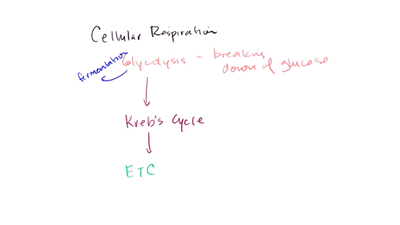 Cellular Respiration
fermentation
Glycolysis - breaking
down of glucose
Kreb's Cycle
ETC